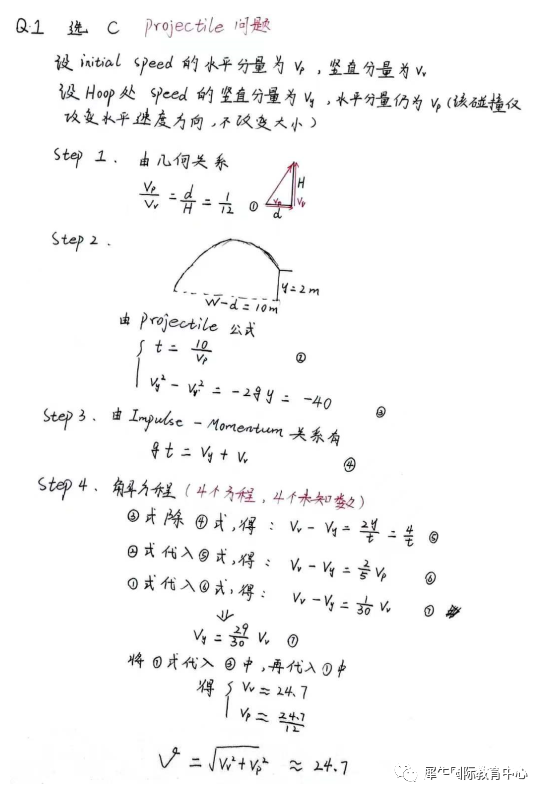 Q.1 选 C projectile 问题
设 initial speed 的水平分量为 Vp，竖直分量为 Vv
设 Hoop处 speed 的竖直分量为 Vy，水平分量仍为 Vp (该碰撞仅
改变水平速度方向，不改变大小)
Step 1. 由几何关系
Vp/Vv = d/H = 1/12 ①
H
Vp Vv
d
Step 2.
y=2m
W-d=10m
由 projectile 公式
t = 10/Vp ②
Vy² - Vv² = -2gy = -40 ③
Step 3. 由 Impulse - Momentum 关系有
gt = Vy + Vv ④
Step 4. 解方程 (4个方程，4个未知数)
③式除④式，得： Vv - Vy = 2y/t = 4/t ⑤
②式代入⑤式，得： Vv - Vy = 2/5 Vp ⑥
①式代入⑥式，得： Vv - Vy = 1/30 Vv ⑦
⇓
Vy = 29/30 Vv ⑦
将⑦式代入③中，再代入①中
得 { Vv ≈ 24.7
Vp ≈ 24.7/12
V = √(Vv²+Vp²) ≈ 24.7
犀牛国际教育中心